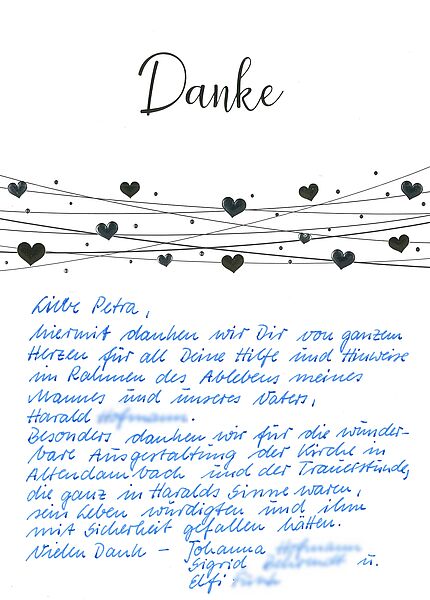 Danke
Liebe Petra,
hiermit danken wir Dir von ganzem
Herzen für all Deine Hilfe und Hinweise
im Rahmen des Ablebens meines
Mannes und unseres Vaters,
Harald
Besonders danken wir für die wunder-
bare Ausgestaltung der Kirche in
Altendambach und der Trauerstunde,
die ganz in Haralds Sinne waren,
sein Leben würdigten und ihm
mit Sicherheit gefallen hätten.
Vielen Dank – Johanna
Sigrid u.
Elfi